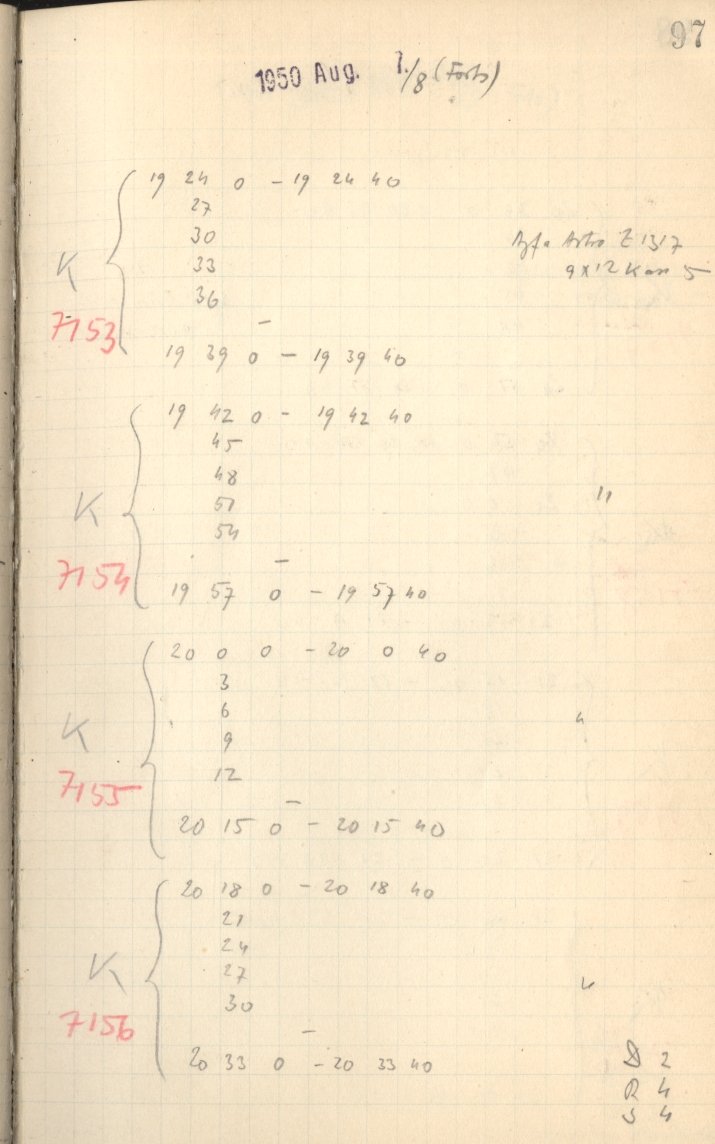 97
1950 Aug. 7./8 (Forts)
19 24 0 - 19 24 40
27
30
Agfa Astro Z 1317
33
9x12 Kass 5
K
36
7153
-
19 39 0 - 19 39 40
19 42 0 - 19 42 40
45
48
K
51
"
54
7154
-
19 57 0 - 19 57 40
20 0 0 - 20 0 40
3
6
"
K
9
12
7155
-
20 15 0 - 20 15 40
20 18 0 - 20 18 40
21
24
K
27
"
30
7156
-
20 33 0 - 20 33 40
D 2
R 4
S 4